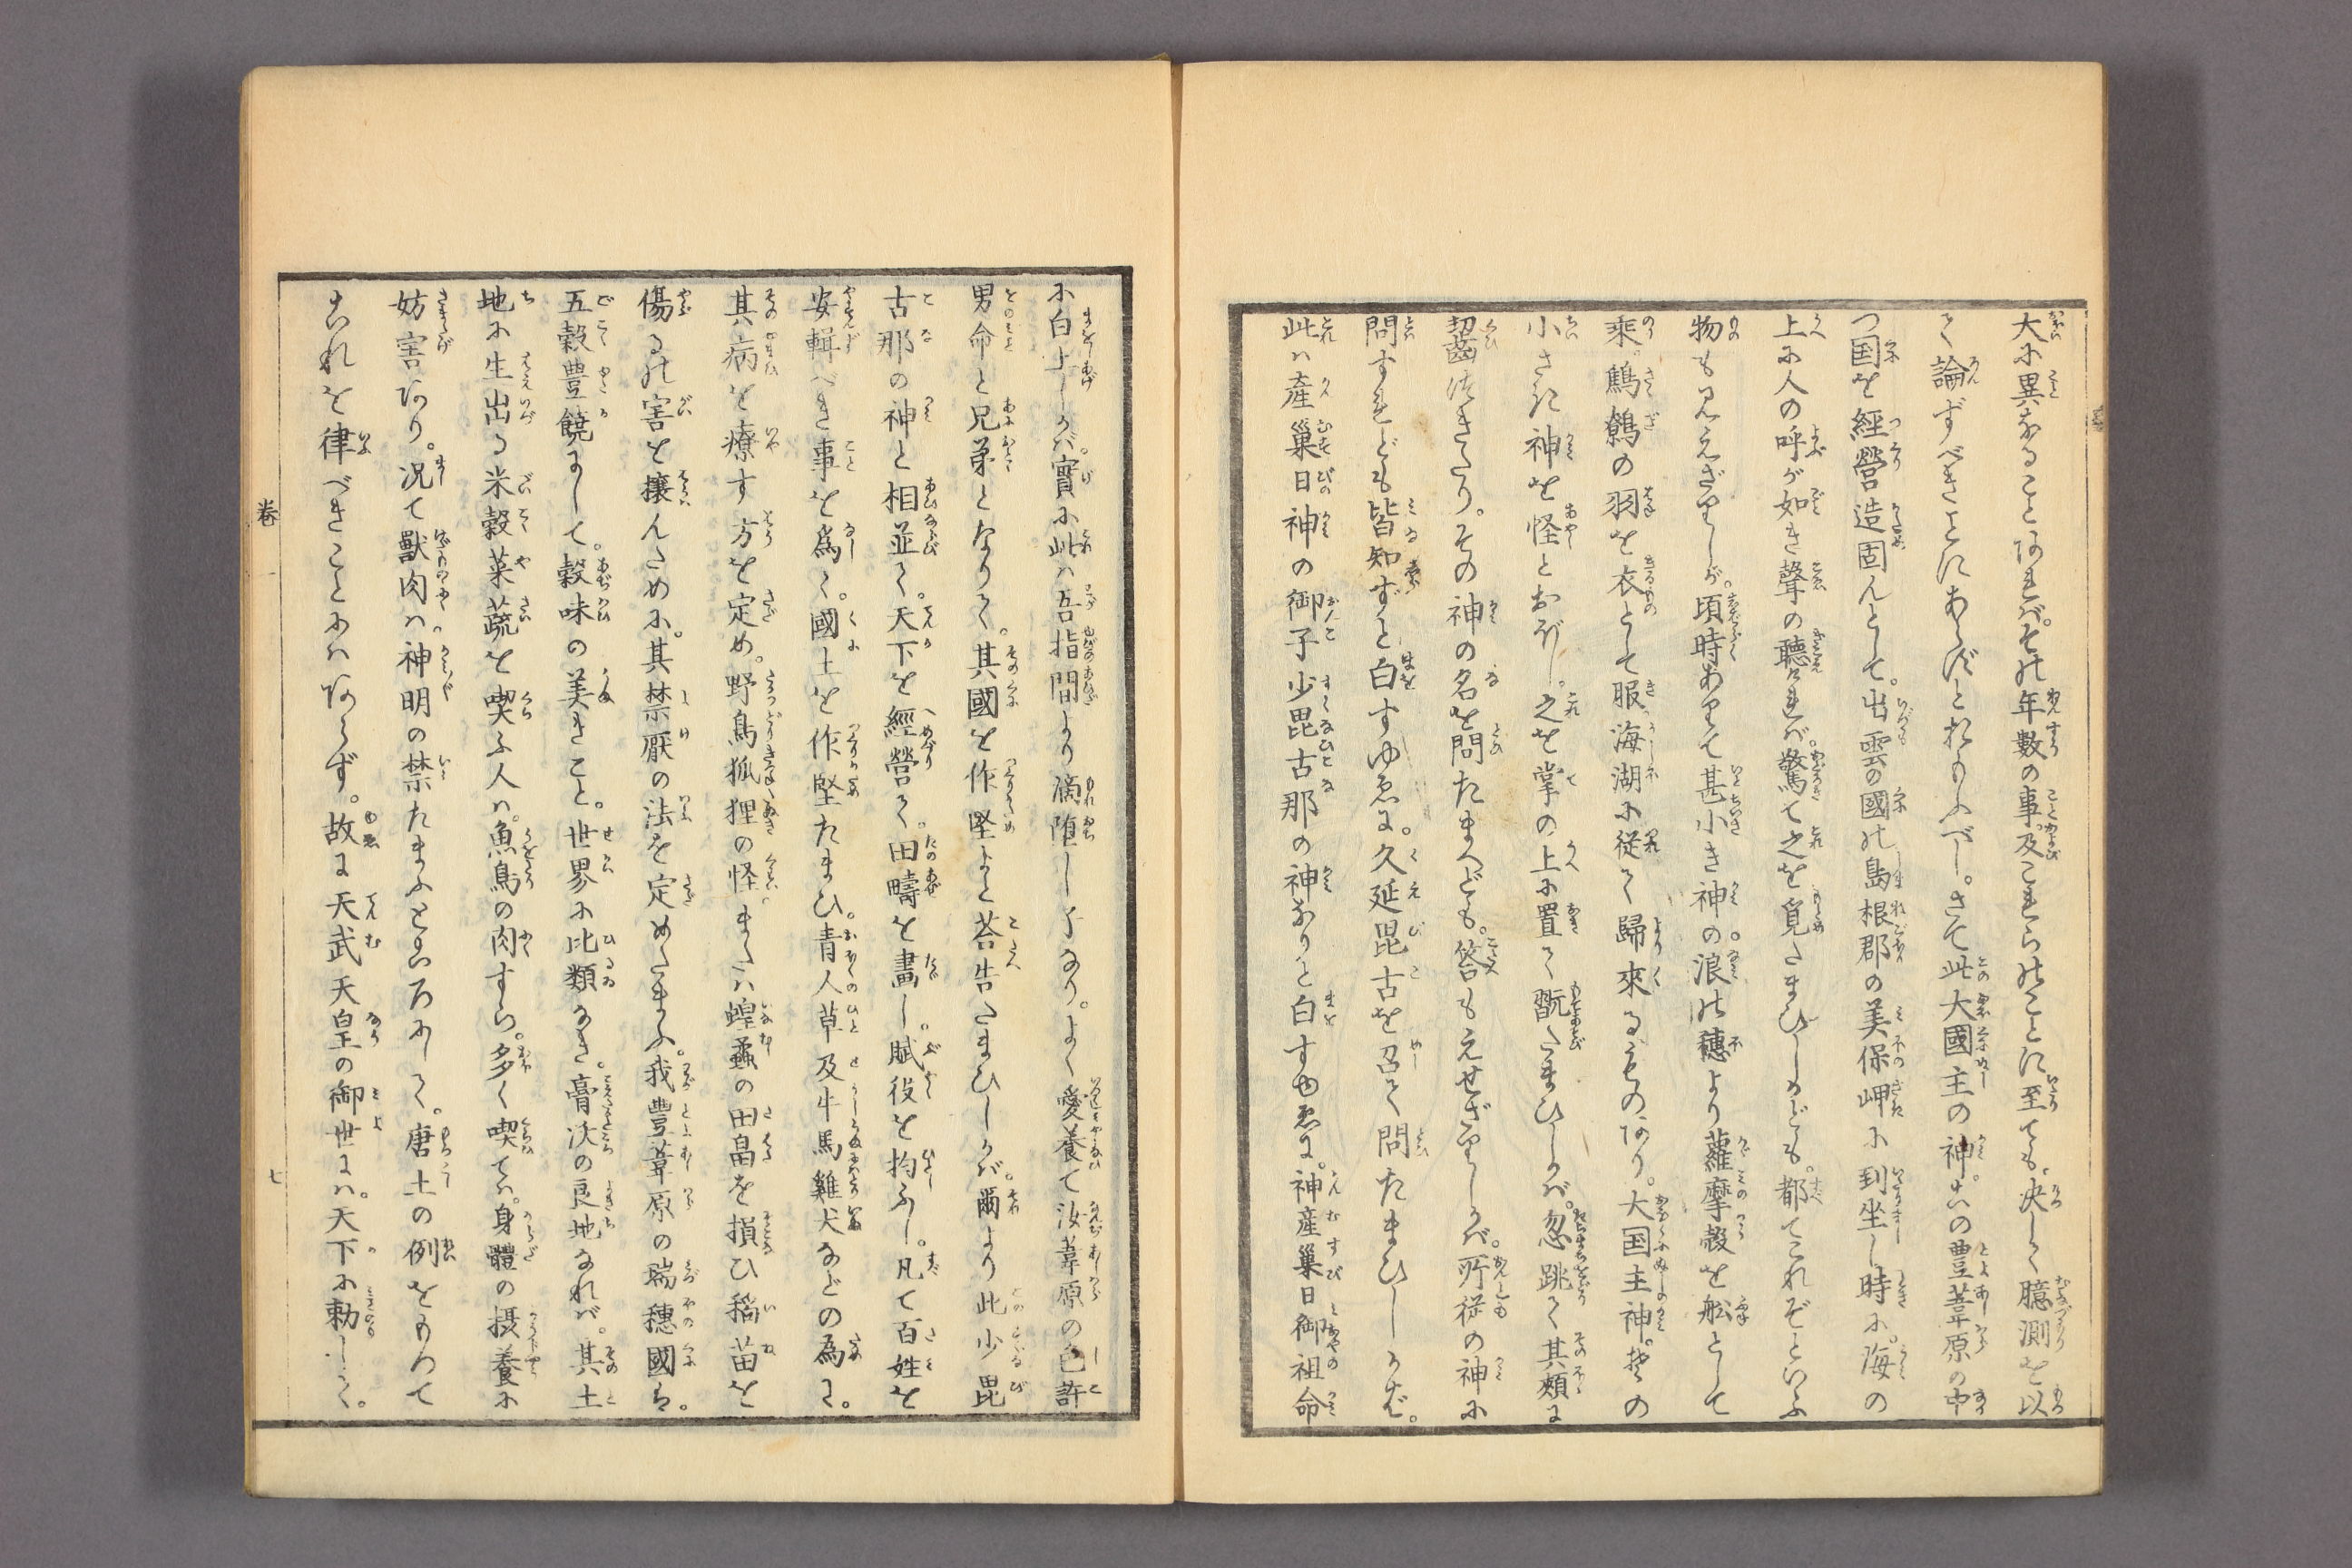 大に異なることあれば。その年數の事。及これらのことに至ても。決して臆測を以
て論ずべきことにあらずとおもふべし。さて此大國主の神。この豊葦原の中
つ国を經營造固んとして。出雲の國の島根郡の美保岬に到坐し時に。海の
上に人の呼が如き聲の聽ければ。驚て之を覓たまひしかども。都てこれぞといふ
物も見えざりしが。頃時ありて甚小き神の。浪の穗より蘿摩殼を舩として
乘。鷦鷯の羽を衣として服。海湖に従て歸來るものあり。大国主神。その
小さき神を怪とおぼし。之を掌の上に置て翫たまひしかば。忽跳て其頬に
齧つきたり。その神の名を問たまへども。答もえせざりしかば。所従の神に
問すれども皆知ずと白すゆゑに。久延毘古を召て問たまひしかば。
此は產巢日神の御子少毘古那の神なりと白すゆゑに。神產巢日御祖命
に白上しかば。實に此は吾指間より漏堕し子なり。よく愛養て汝葦原の色許
男命と兄弟となりて。其國を作堅よと荅告たまひしかば。爾より此少毘
古那の神と相並て。天下を經營て。田疇を畵し。賦役を均ふし。凡て百姓を
安輯べき事を爲て。國土を作堅たまひ。青人草及牛馬雞犬などの為に。
其病を療す方を定め。野鳥狐狸の怪。または蝗螽の田畠を損ひ稲苗を
傷るの害を攘んために。其禁厭の法を定めたまふ。我豊葦原の瑞穗國は。
五穀豊饒にして。穀味の美きこと。世界に比類なき。膏沃の良地なれば。其土
地に生出る米穀菜蔬を喫ふ人は。魚鳥の肉すら。多く喫ては。身體の摂養に
妨害あり。况て獸肉は。神明の禁たまふところにして。唐土の例をもつて
これを律べきことにはあらず。故に天武天皇の御世には。天下に勅して。
卷一
七